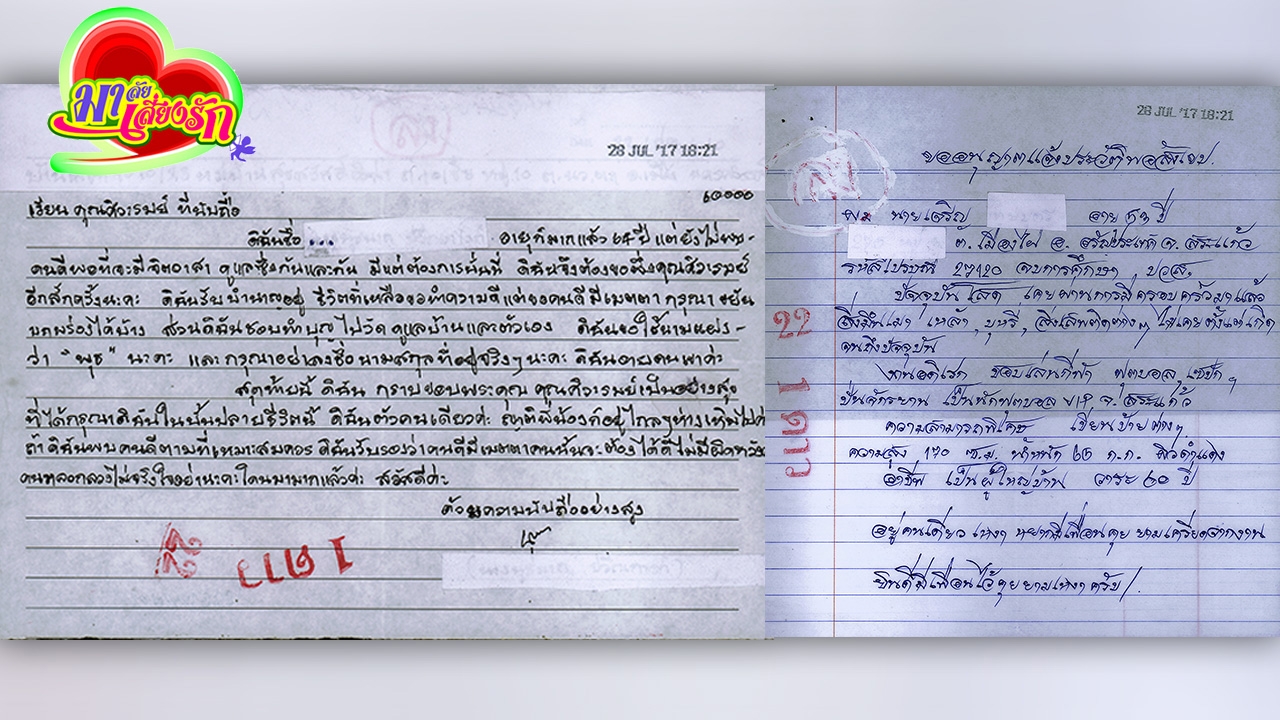 มาลัยเสี่ยงรัก
ลง
28 JUL '17 18:21
๖๐๐๐๐
เรียน คุณศิวะรมย์ ที่นับถือ
ดิฉันชื่อ ... อายุก็มากแล้ว ๖๕ ปี แต่ยังไม่พบ-
คนดีพอที่จะมีจิตอาสา ดูแลซึ่งกันและกัน มีแต่ต้องการนั่นนี่ ดิฉันจึงต้องขอพึ่งคุณศิวะรมย์
อีกสักครั้งนะคะ ดิฉันรับบำนาญอยู่ ชีวิตที่เหลือขอทำความดี แต่ขอคนดีมีเมตตา กรุณา ขยัน
บกพร่องได้บ้าง ส่วนดิฉันชอบทำบุญไปวัด ดูแลบ้านและตัวเอง ดิฉันขอใช้นามแฝง-
ว่า "พุธ" นะคะ และกรุณาอย่าลงชื่อนามสกุลที่อยู่จริงๆนะคะ ดิฉันอายคนเขาค่ะ
สุดท้ายนี้ ดิฉัน กราบขอบพระคุณ คุณศิวะรมย์เป็นอย่างสูง
ที่ได้กรุณาดิฉันในบั้นปลายชีวิตนี้ ดิฉันตัวคนเดียวค่ะ ญาติพี่น้องก็อยู่ไกลๆห่างเหิน
ถ้าดิฉันพบคนดีตามที่เหมาะสมควร ดิฉันรับรองว่าคนดีมีเมตตาคนนั้นจะต้องได้ดีไม่มีผิดหวัง
คนหลอกลวงไม่จริงใจอย่านะคะ โดนมามากแล้วค่ะ สวัสดีค่ะ
ด้วยความนับถืออย่างสูง
1 ดาว
28 JUL '17 18:21
ลง
ขออนุญาตแจ้งประวัติพอสังเขป
ผม นายเจริญ อายุ ๕๓ ปี
ต. เมืองไผ่ อ. อรัญประเทศ จ. สระแก้ว
รหัสไปรษณีย์ 27120 จบการศึกษา ปวส.
ปัจจุบัน โสด เคยผ่านการมีครอบครัวมาแล้ว
สิ่งมึนเมา เหล้า, บุหรี่, สิ่งเสพติดต่างๆ ไม่เคยตั้งแต่เกิด
จนถึงปัจจุบัน
งานอดิเรก ชอบเล่นกีฬา ฟุตบอล
ปั่นจักรยาน เป็นนักฟุตบอล จ. สระแก้ว
ความสามารถพิเศษ เขียนป้ายต่างๆ
ความสูง ๑๗๐ ซ.ม. น้ำหนัก ๖๕ ก.ก. ผิวดำแดง
อาชีพ เป็นผู้ใหญ่บ้าน วาระ ๖๐ ปี
อยู่คนเดียว เหงา อยากมีเพื่อนคุย ยามเครียดจากงาน
ยินดีมีเพื่อนไว้คุยยามเหงาครับ
22 1 ดาว